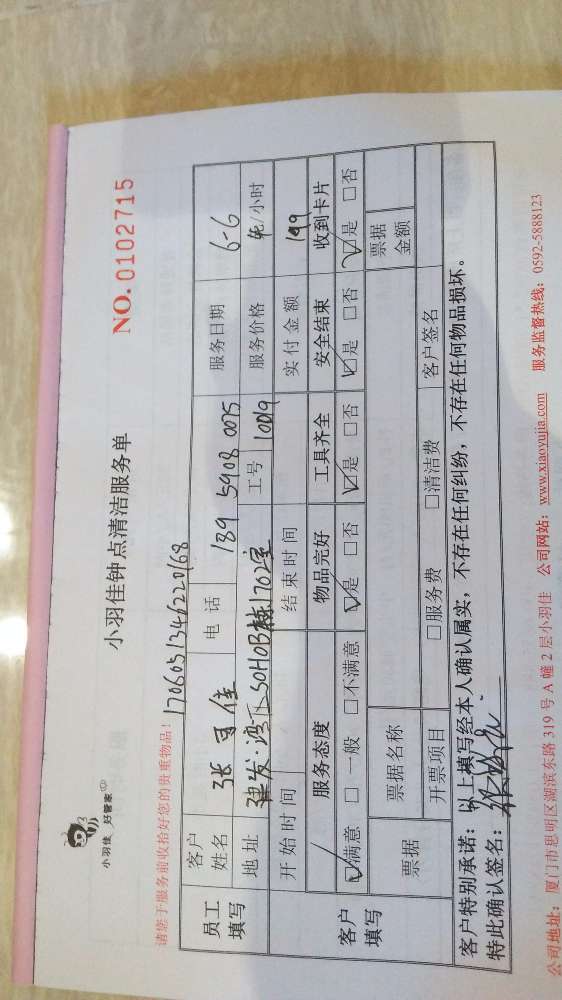 小羽佳 好管家
小羽佳钟点清洁服务单
NO. 0102715
请您于服务前收拾好您的贵重物品!
1706051346220168
员工填写 客户姓名 张可佳 电话 189 5908 0075 服务日期 6-6
地址 建发湾下SOHOB栋1702室 工号 10019 服务价格 /小时
客户填写 开始时间 结束时间 实付金额 199
服务态度 物品完好 工具齐全 安全结束 收到卡片
☑满意 □一般 □不满意 ☑是 □否 ☑是 □否 ☑是 □否 ☑是 □否
票据 票据名称 票据金额
开票项目 □服务费 □清洁费 客户签名
客户特别承诺:以上填写经本人确认属实,不存在任何纠纷,不存在任何物品损坏。
特此确认签名:
公司地址:厦门市思明区湖滨东路 319 号 A 幢 2 层小羽佳 公司网站:www.xiaoyujia.com 服务监督热线:0592-5888123